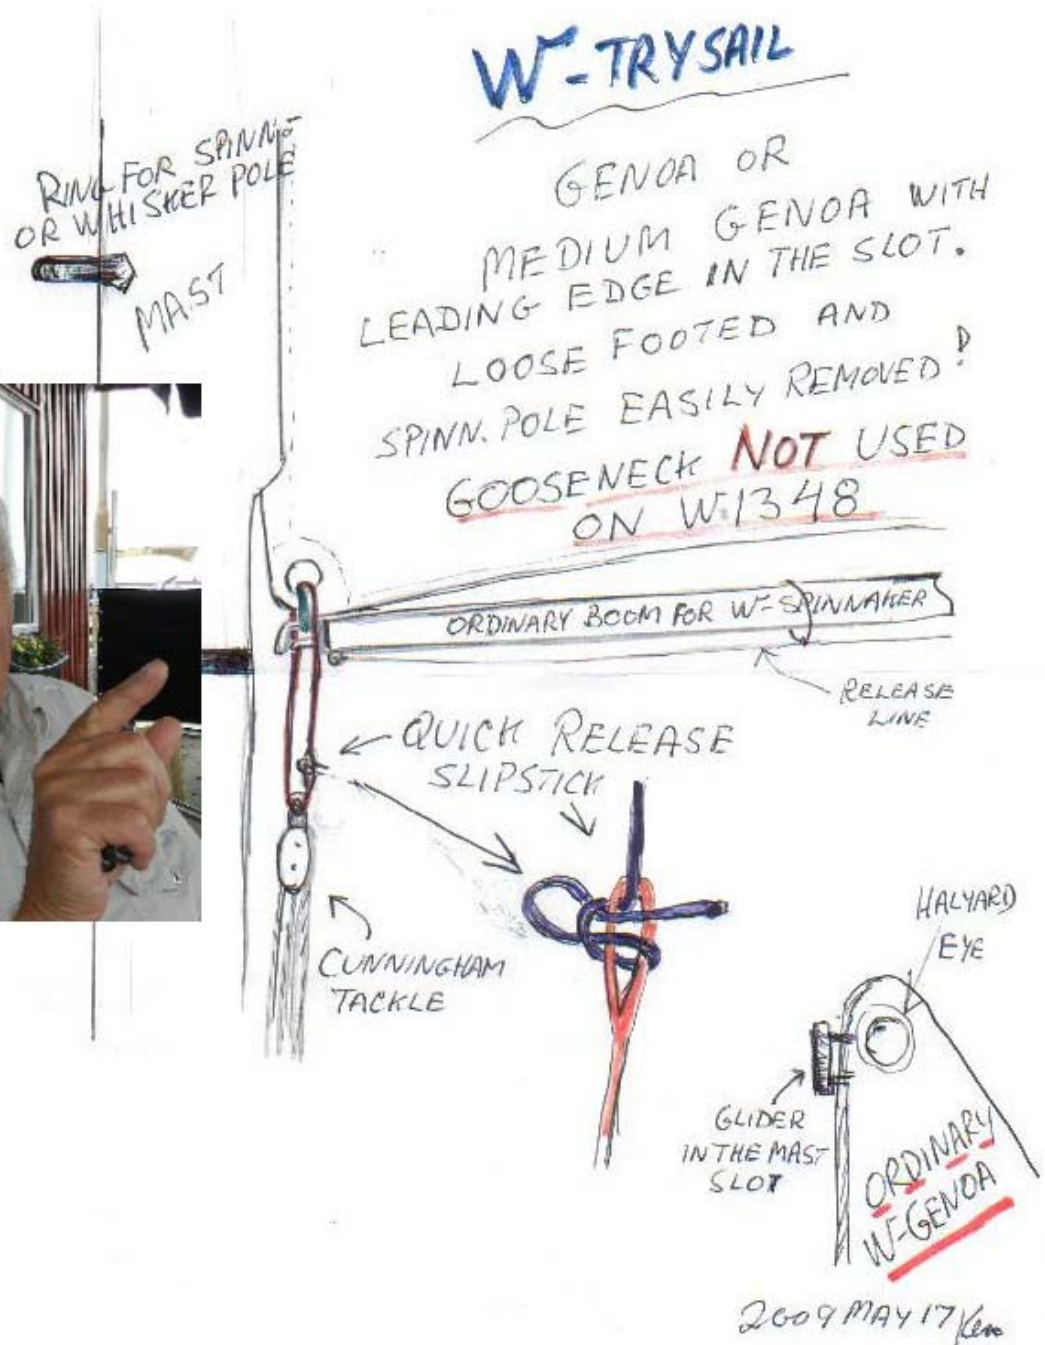 W-TRYSAIL
RING FOR SPINN-
OR WHISKER POLE
MAST
GENOA OR
MEDIUM GENOA WITH
LEADING EDGE IN THE SLOT.
LOOSE FOOTED AND
SPINN. POLE EASILY REMOVED!
GOOSENECK NOT USED
ON W.1348
ORDINARY BOOM FOR W-SPINNAKER
RELEASE
LINE
QUICK RELEASE
SLIPSTICK
CUNNINGHAM
TACKLE
HALYARD
EYE
GLIDER
IN THE MAST
SLOT
ORDINARY
W-GENOA
2009 MAY 17/Ken